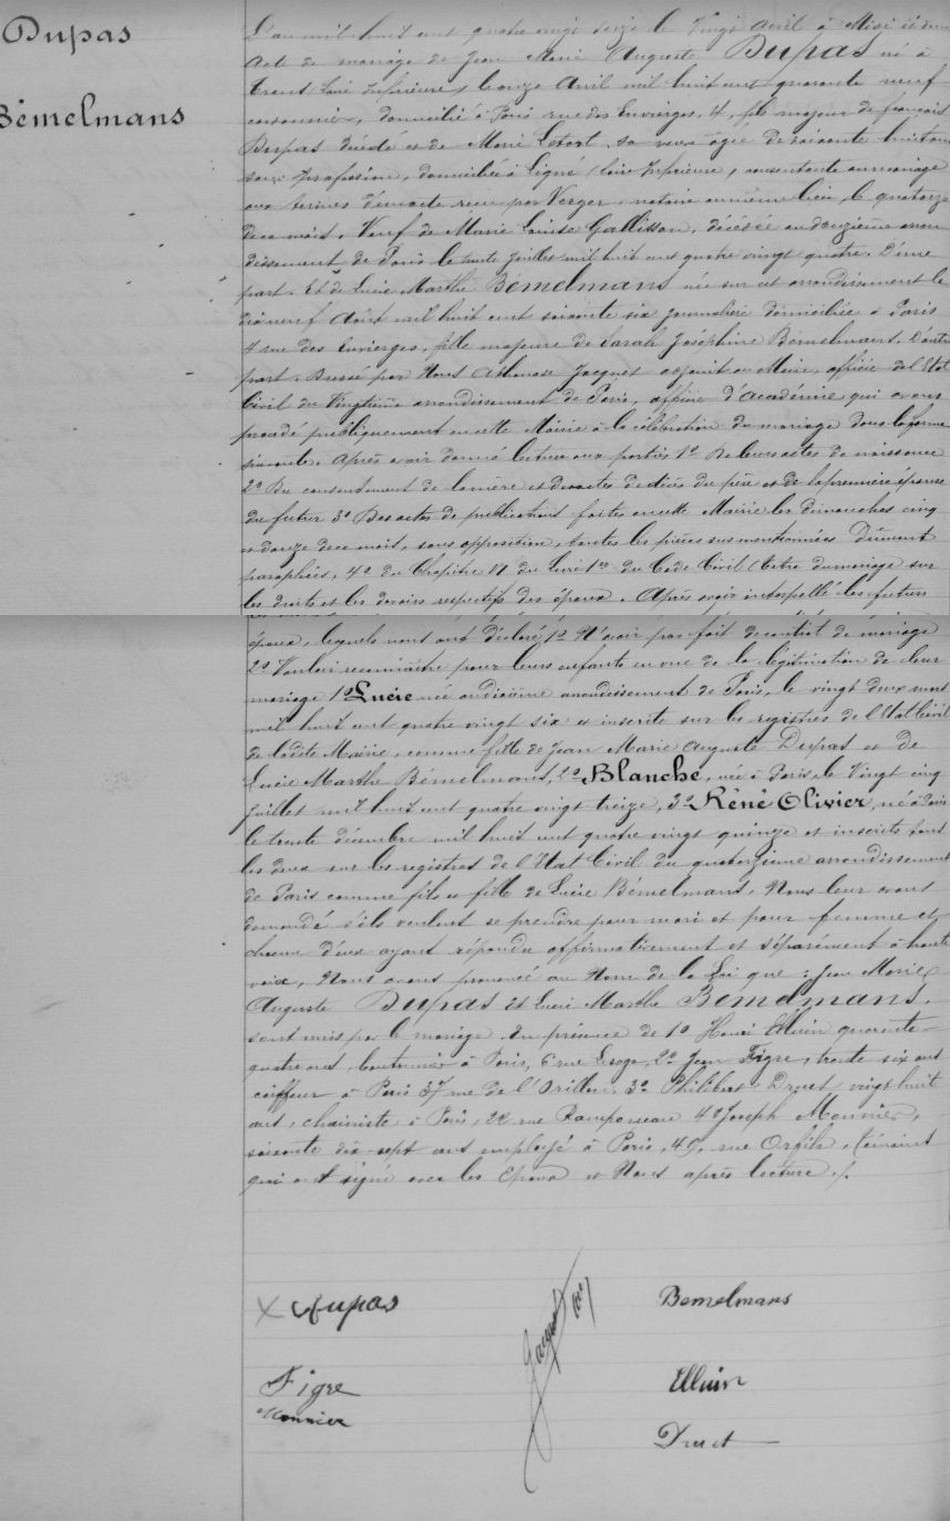 Dupas
Bémelmans
L'an mil huit cent quatre vingt seize le Vingt avril à Midi
Acte de mariage de Jean Marie Auguste Dupas né à
Trans Loire Inférieure, le onze Avril mil huit cent quarante neuf
cordonnier, domicilié à Paris rue des Envierges, 4, fils majeur de François
Dupas décédé et de Marie Letort, sa veuve âgée de soixante huit ans
sans profession, domiciliée à Ligné (Loire Inférieure), consentante au mariage
aux termes d'un acte reçu par Verger notaire au même lieu, le quatorze
de ce mois, Veuf de Marie Louise Gallisson, décédée au douzième arron
dissement de Paris le trente juillet mil huit cent quatre vingt quatre. D'une
part. Et de Lucie Marthe Bémelmans née sur cet arrondissement le
dix neuf Août mil huit cent soixante six journalière domiciliée à Paris
4 rue des Envierges, fille majeure de Sarah Joséphine Bémelmans. D'autre
part. Dressé par Nous Jacquet adjoint au Maire, officier de l'Etat
Civil du Vingtième arrondissement de Paris, officier d'Académie qui avons
procédé publiquement en cette Mairie à la célébration du mariage dans la forme
suivante. Après avoir donné lecture aux parties 1º De leurs actes de naissance
2º Du consentement de la mère et des actes de décès du père et de la première épouse
du futur 3º Des actes de publications faites en cette Mairie les dimanches cinq
et douze de ce mois, sans opposition, toutes les pièces sus mentionnées Dûment
paraphées, 4º du Chapitre VI du Livre 1er du Code Civil (titre du mariage sur
les droits et les devoirs respectifs des époux. Après avoir interpellé les futurs
époux, lesquels nous ont déclaré 1º N'avoir pas fait de contrat de mariage
2º Vouloir reconnaître pour leurs enfants en vue de la légitimation de leur
mariage 1º Lucie née au dixième arrondissement de Paris, le vingt deux
mil huit cent quatre vingt six et inscrite sur les registres de l'Etat Civil
de ladite Mairie, comme fille de Jean Marie Auguste Dupas et de
Lucie Marthe Bémelmans, 2º Blanche, née à Paris, le Vingt cinq
juillet mil huit cent quatre vingt treize, 3º Réné Olivier, né à Paris
le trente décembre mil huit cent quatre vingt quinze et inscrits tous
les deux sur les registres de l'Etat Civil du quatorzième arrondissement
de Paris comme fils et fille de Lucie Bémelmans. Nous leur avons
demandé s'ils veulent se prendre pour mari et pour femme et
chacun d'eux ayant répondu affirmativement et séparément à haute
voix, Nous avons prononcé au Nom de la Loi que : Jean Marie
Auguste Dupas et Lucie Marthe Bémelmans,
sont unis par le mariage En présence de 1º Henri Elluin quarante
quatre ans, à Paris, 6 rue Lesage, 2º Jean Figre, trente six ans
coiffeur à Paris 37 rue de l'Orillon, 3º Philibert Druet vingt huit
ans, chaîniste à Paris, 22 rue Ramponeau 4º Joseph Monnier,
soixante dix sept ans employé à Paris, 49, rue Orfila, témoins
qui ont signé avec les Epoux et Nous après lecture ./.
Dupas
Bemelmans
Jacquet
Figre
Elluin
Monnier
Druet